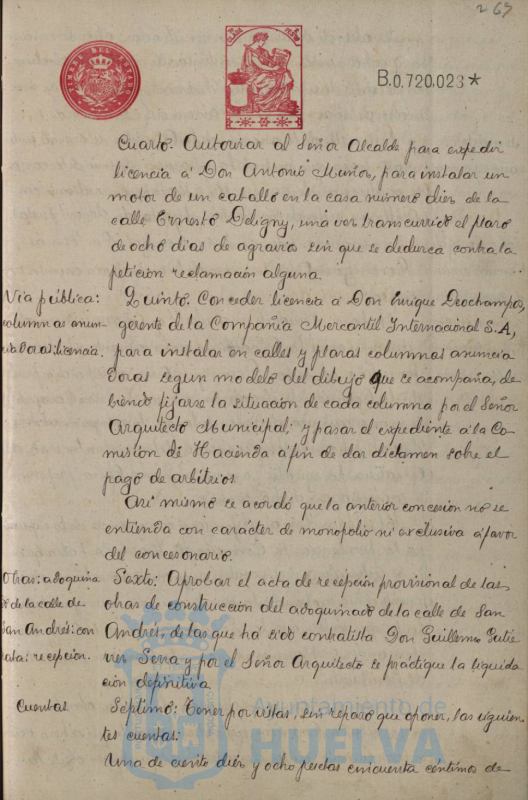 267
TIMBRE DEL ESTADO
B.0.720.023*
Cuarto. Autorizar al Señor Alcalde para expedir
licencia á Don Antonio Muñoz, para instalar un
motor de un caballo en la casa número diez de la
calle Ernesto Deligny, una vez transcurrido el plazo
de ocho dias de agravios sin que se deduzca contra la
petición reclamación alguna.
Via pública:
columnas anun-
ciadoras: licencia.
Quinto. Conceder licencia á Don Enrique Deschamps,
gerente de la Compañia Mercantil Internacional S.A,
para instalar en calles y plazas columnas anuncia
doras segun modelo del dibujo que se acompaña, de
biendo fijarse la situación de cada columna por el Señor
Arquitecto Municipal; y pasar el expediente á la Co
misión de Hacienda afin de dar dictamen sobre el
pago de arbitrios.
Asi mismo se acordó que la anterior concesion no se
entienda con carácter de monopolio ni exclusiva á favor
del concesonario.
Obras: adoquina
do de la calle de
San Andrés: con
trata: recepción.
Sexto: Aprobar el acta de recepción provisional de las
obras de construcción del adoquinado de la calle de San
Andrés, de las que há sido contratista Don Guillermo Gutié
rrez Serra y por el Señor Arquitecto se práctique la liquida
ción definitiva
Cuentas
Séptimo: Tener por vistas, sin reparo que oponer, las siguien
tes cuentas:
Una de ciento diez y ocho pesetas cincuenta céntimos de
Ayuntamiento de
HUELVA